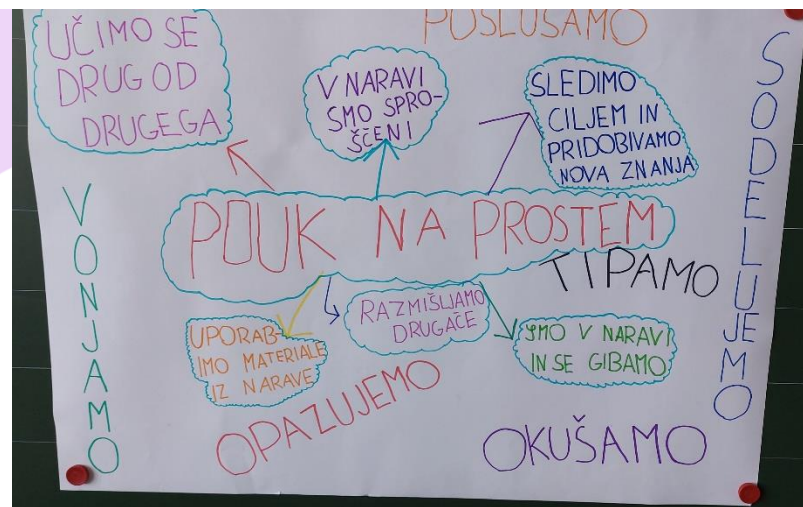 POSLUŠAMO
UČIMO SE
DRUG OD
DRUGEGA
V NARAVI
SMO SPRO-
ŠČENI
SLEDIMO
CILJEM IN
PRIDOBIVAMO
NOVA ZNANJA
SODELUJEMO
VONJAMO
POUK NA PROSTEM
TIPAMO
UPORAB-
IMO MATERIALE
IZ NARAVE
RAZMIŠLJAMO
DRUGAČE
SMO V NARAVI
IN SE GIBAMO
OPAZUJEMO
OKUŠAMO